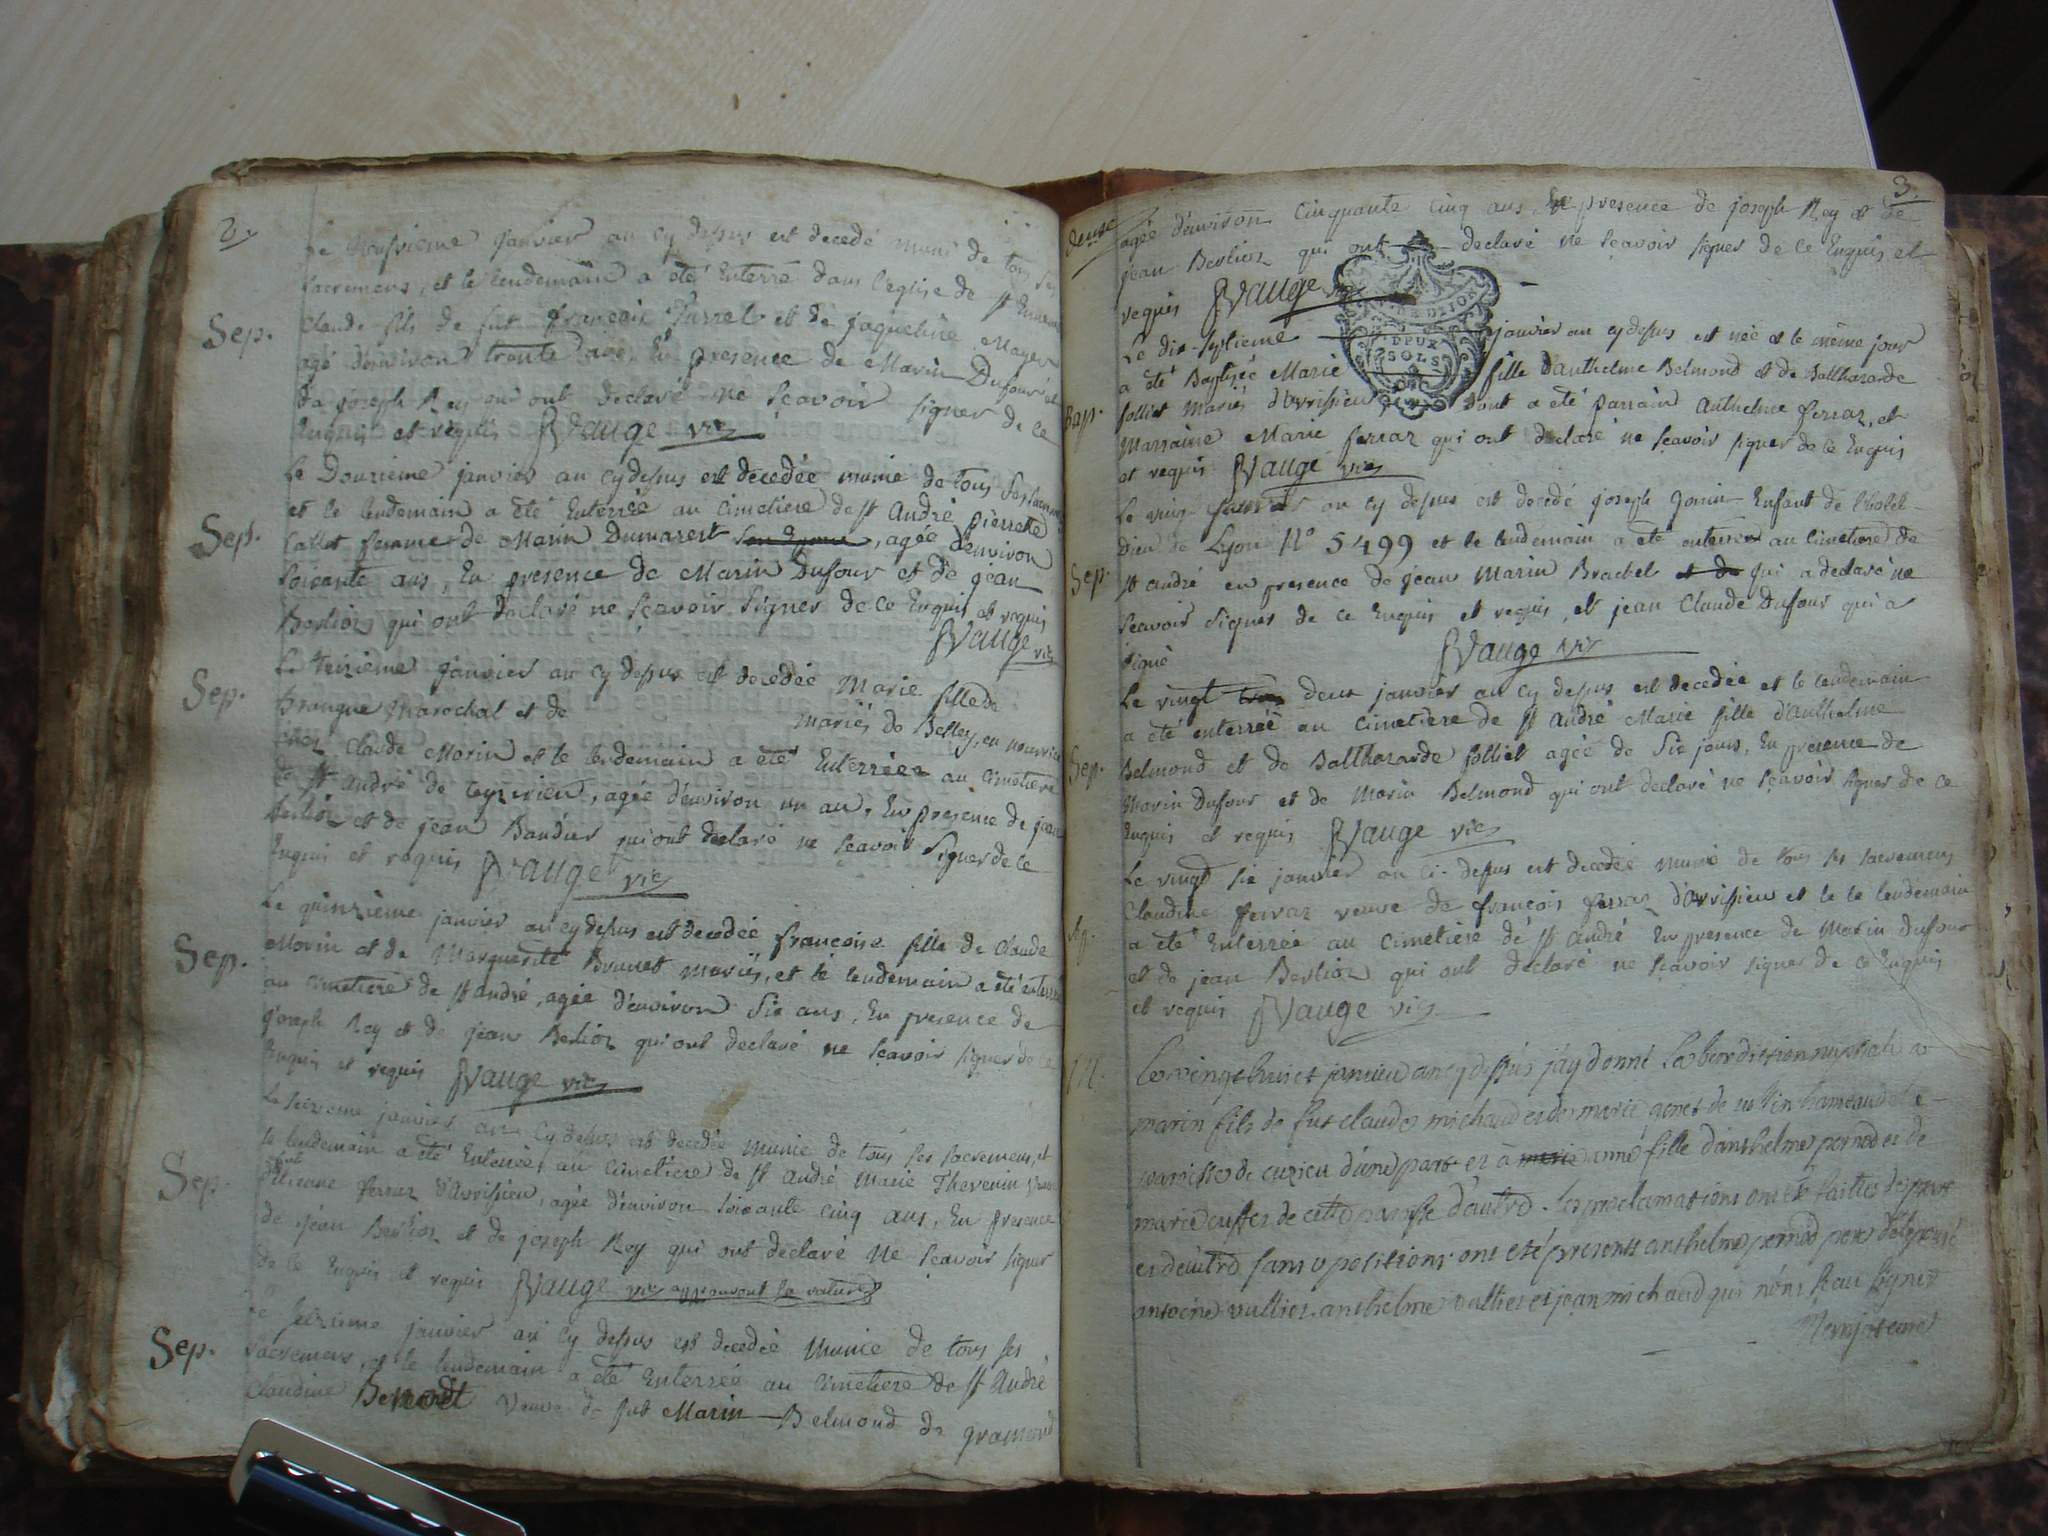 2.
Le onzieme janvier an cy dessus est decedé muni de tous ses
sacremens, et le lendemain a eté Enterré dans l'eglise de st
Sep.
Claude fils de fut françois et de jaqueline Mayer
agé d'environ trente ans, En presence de Marin Dufour et
de joseph Rey qui ont declaré ne sçavoir signer de ce
Enquis et requis JVauge vic
Le Douzieme janvier an cy dessus est decedée munie de tous ses sacremens
et le lendemain a eté Enterrée au cimetiere de st André pierrette
Sep.
Callet femme de Marin Dumarest son Epoux, agée d'environ
soixante ans, En presence de Marin Dufour et de jean
Berlioz qui ont declaré ne sçavoir signer de ce Enquis et requis
JVauge vic
Le treizieme janvier an cy dessus est decedée Marie fille de
Sep.
Marechal et de mariés de Belley, en nourrice
chez Claude Morin et le lendemain a eté Enterrée au cimetiere
de st André de, agée d'environ un an, En presence de jean
Berlioz et de jean Bandier qui ont declaré ne sçavoir signer de ce
Enquis et requis JVauge vic
Le quinzieme janvier an cy dessus est decedée françoise fille de Claude
Sep.
Morin et de Marguerite Brunet mariés, et le lendemain a eté enterrée
au cimetiere de st André, agée d'environ six ans, En presence de
joseph Rey et de jean Berlioz qui ont declaré ne sçavoir signer de ce
Enquis et requis JVauge vic
Le seizieme janvier an cy dessus est decedée munie de tous ses sacremens, et
le lendemain a eté Enterrée au cimetiere de st André Marie Thevenin
fut
Sep.
Etienne ferraz d'Avrissieu, agée d'environ soixante cinq ans, En presence
de jean Berlioz et de joseph Rey qui ont declaré ne sçavoir signer
de ce Enquis et requis JVauge vic approuvant la rature
Le seizieme janvier an cy dessus est decedée munie de tous ses
Sep.
sacremens, et le lendemain a eté Enterrée au cimetiere de st André
Claudine Benoit veuve de fut Marin Belmond de gramond
3.
agée d'environ cinquante cinq ans, En presence de joseph Rey et de
jean Berlioz qui ont declaré ne sçavoir signer de ce Enquis et
requis JVauge vic
DEUX
SOLS
Le dix-septieme janvier an cy dessus est née et le même jour
a eté Baptisée Marie fille d'Anthelme Belmond et de Balthazarde
Bap.
Jolliet mariés d'Avrissieu, dont a eté parrain Anthelme ferraz, et
marraine Marie ferraz qui ont declaré ne sçavoir signer de ce Enquis
et requis JVauge vic
Le vingt janvier an cy dessus est decedé joseph Enfant de l'hotel
Dieu de Lyon N° 5499 et le lendemain a eté enterré au cimetiere de
Sep.
st andré en presence de jean Marin Brachet et de qui a declaré ne
sçavoir signer de ce Enquis et requis, et jean Claude Dufour qui a
signé JVauge vic
Le vingt trois deux janvier an cy dessus est decedée et le lendemain
a eté enterrée au cimetiere de st André Marie fille d'Anthelme
Sep.
Belmond et de Balthazarde Jolliet agée de six jours, En presence de
Marin Dufour et de Marin Belmond qui ont declaré ne sçavoir signer de ce
Enquis et requis JVauge vic
Le vingt six janvier an ci-dessus est decedée munie de tous ses sacremens
Claudine ferraz veuve de françois ferraz d'Avrissieu et le lendemain
a eté Enterrée au cimetiere de st André En presence de Marin Dufour
et de jean Berlioz qui ont declaré ne sçavoir signer de ce Enquis
et requis JVauge vic
M.
Le vingt huict janvier an cy dessus j'ay donné la benediction nuptiale a
marin fils de fut claude michaud et de marie de hameau de
paroisse de cuzieu d'une part et à marie anne fille d'anthelme pernod et de
marie de cette paroisse d'autre. les proclamations ont eté faittes de part
et d'autre sans opositions ont eté presents anthelme pernod pere de l'epouse
antoine vullier anthelme vullier et jean michaud qui n'ont sceu signer